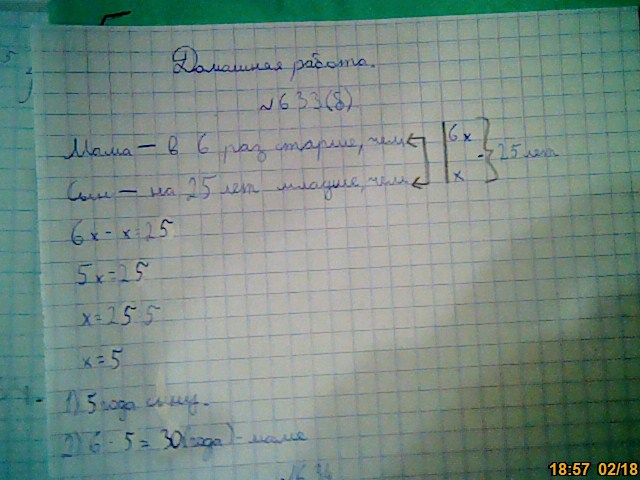 Домашная работа.
№633(б)
Мама — в 6 раз старше, чем 6x
Сын — на 25 лет младше, чем x - 25 лет
6x - x = 25
5x = 25
x = 25:5
x = 5
1) 5 года сыну.
2) 6 · 5 = 30(года) - маме
18:57 02/18